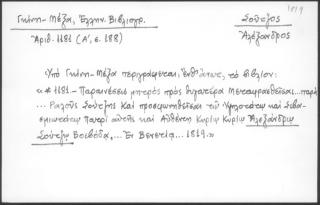 1819
Γκίνη - Μέξα, Ἑλλην. Βιβλιογρ.
Σοῦτζος
Ἀριθ. 1181 (Α', σ. 188)
Ἀλέξανδρος
Ὑπό Γκίνη - Μέξα περιγράφεται, ἐνθάντως, τό βιβλίον:
«*1181.- Παραινέσεις μητρός πρός θυγατέρα Μεταφρασθεῖσαι... παρά
... Ραλοῦς Σούτζης Καί προσφωνηθεῖσαι τῷ Ὑψηλοτάτῳ καί Σεβα-
σμιωτάτῳ Πατρί αὐτῆς καί Αὐθέντῃ Κυρίῳ Κυρίῳ Ἀλεξάνδρῳ
Σούτζῳ Βοεβόδᾳ, ... Ἐν Βενετίᾳ... 1819.»